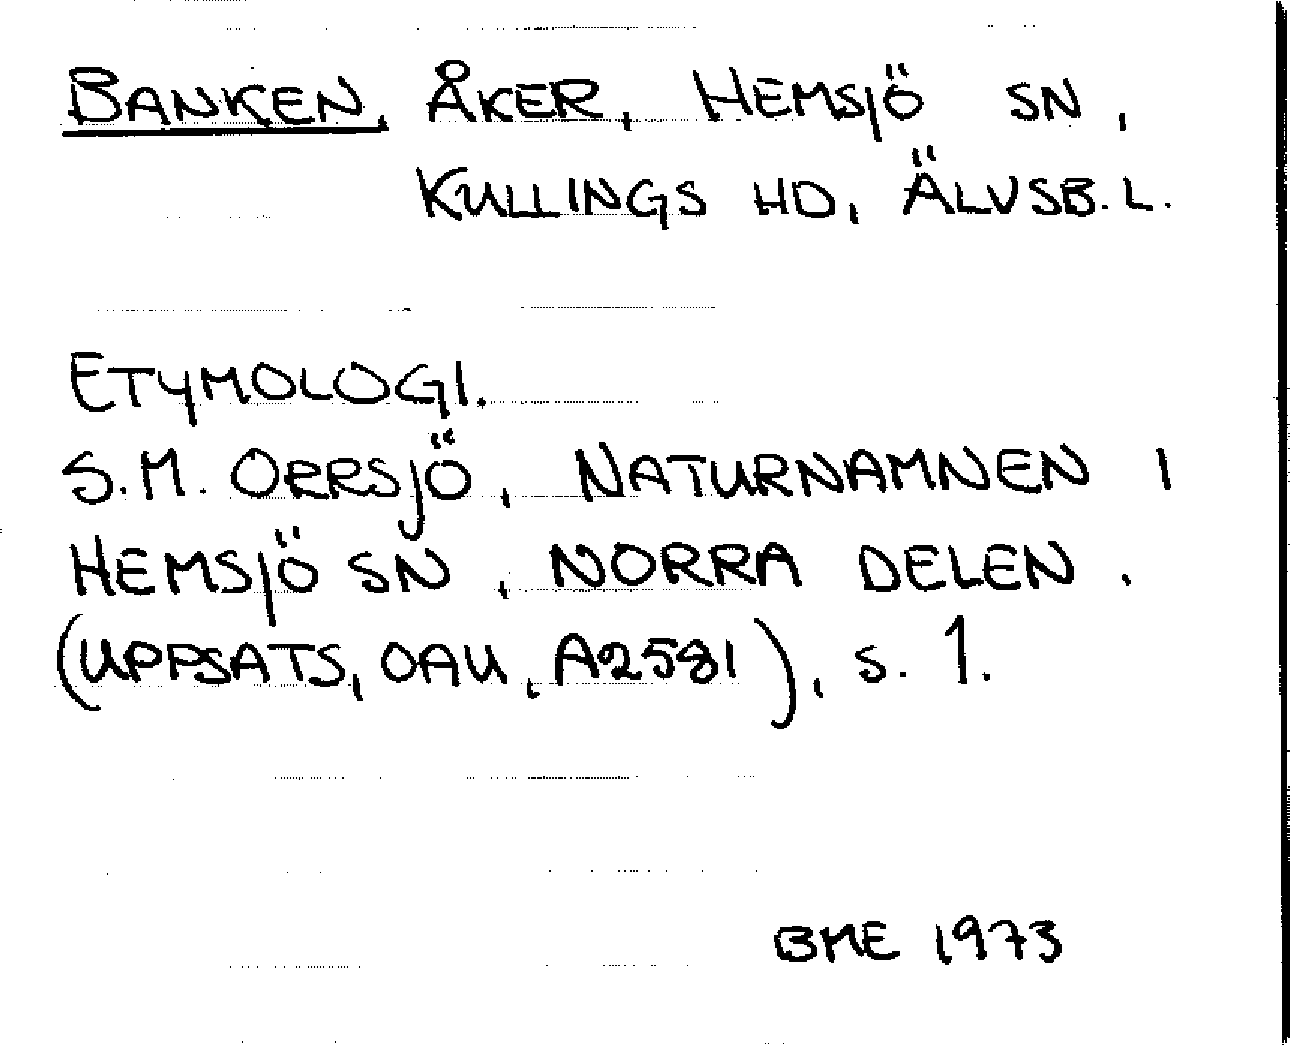 BANKEN, ÅKER, HEMSJÖ SN,
KULLINGS HD, ÄLVSB.L.
ETYMOLOGI.
S.M. ORRSJÖ, NATURNAMNEN I
HEMSJÖ SN, NORRA DELEN.
(UPPSATS, OAU, A2581), S. 1.
BME 1973